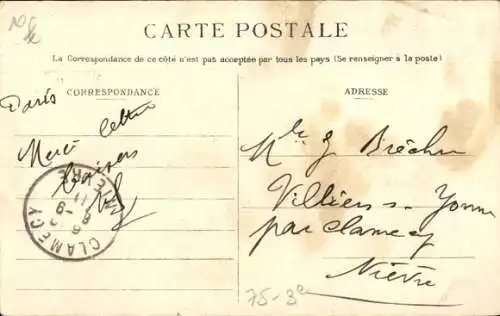 CARTE POSTALE
La Correspondance de ce côté n'est pas acceptée par tous les pays (Se renseigner à la poste)
CORRESPONDANCE
ADRESSE
Paris
Merci
Baisers
CLAMECY
NIÈVRE
Mlle G Bréchu
Villiers s. Yonne
par Clamecy
Nièvre
75-3e